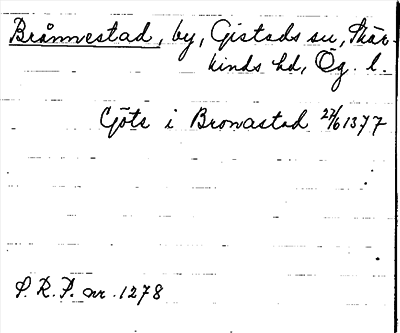 Brånnestad, by, Gistads sn, Skär-
kinds hd, Ög. l.
Göte i Bronastad 27/6 1377
S. R. P. nr. 1278